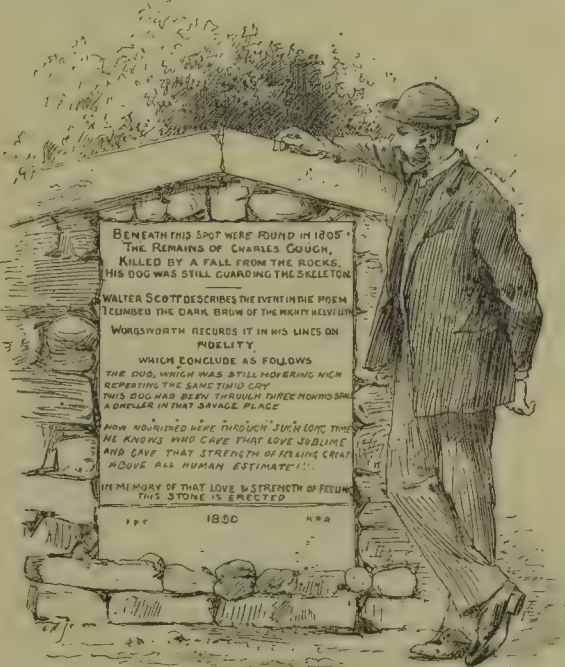 BENEATH THIS SPOT WERE FOUND IN 1805
THE REMAINS OF CHARLES GOUGH,
KILLED BY A FALL FROM THE ROCKS.
HIS DOG WAS STILL GUARDING THE SKELETON
WALTER SCOTT DESCRIBES THE EVENT IN THE POEM
I CLIMBED THE DARK BROW OF THE MIGHTY HELVELLYN
WORDSWORTH RECORDS IT IN HIS LINES ON
FIDELITY,
WHICH CONCLUDE AS FOLLOWS
THE DOG, WHICH WAS STILL HOVERING NIGH
REPEATING THE SAME TIMID CRY
THIS DOG HAD BEEN THROUGH THREE MONTHS SPACE
A DWELLER IN THAT SAVAGE PLACE
HOW NOURISHED HERE THROUGH SUCH LONG TIME
HE KNOWS WHO GAVE THAT LOVE SUBLIME
AND GAVE THAT STRENGTH OF FEELING GREAT
ABOVE ALL HUMAN ESTIMATE!
IN MEMORY OF THAT LOVE & STRENGTH OF FEELING
THIS STONE IS ERECTED
1890